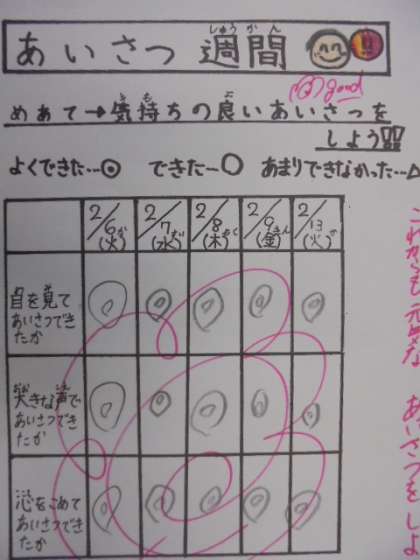 しゅうかん
あいさつ 週間
good
きも よ
めあて→気持ちの良いあいさつを
しよう!!
よくできた…◎ できた…○ あまりできなかった…△
2/6(火) 2/7(水) 2/8(木) 2/9(金) 2/13(火)
目を見て
あいさつでき
たか
大きな声で
あいさつでき
たか
心をこめて
あいさつでき
たか
これからも元気な あいさつを し